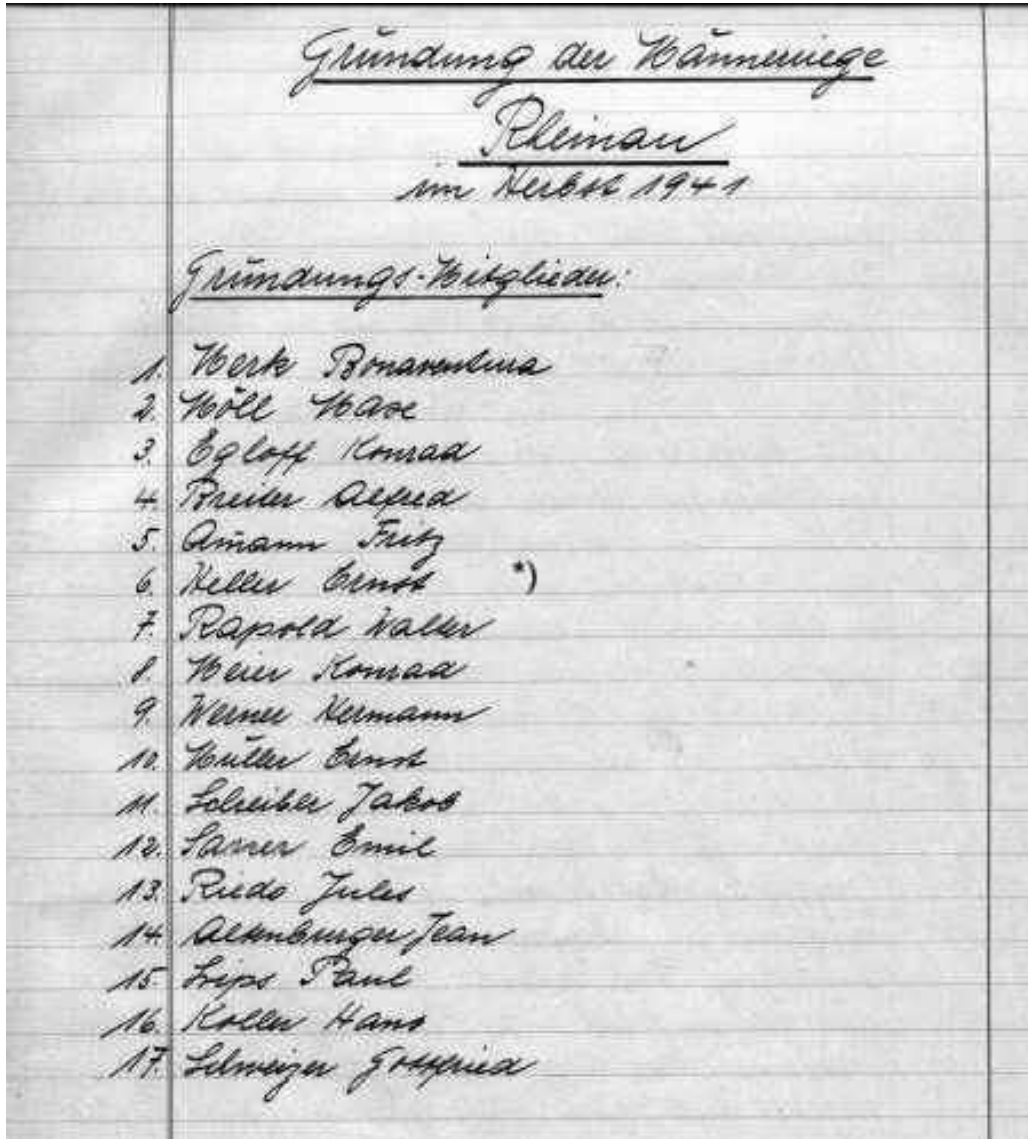 Gründung der Männerriege
Rheinau
im Herbst 1941
Gründungs-Mitglieder:
1. Merk Bonaventura
2. Möll Max
3. Egloff Konrad
4. Breiter Alfred
5. Amann Fritz
6. Heller Ernst *)
7. Rapold Walter
8. Meier Konrad
9. Werner Hermann
10. Müller Ernst
11. Schreiber Jakob
12. Sarrer Emil
13. Riedo Jules
14. Altenburger Jean
15. Lips Paul
16. Koller Hans
17. Schweizer Gottfried